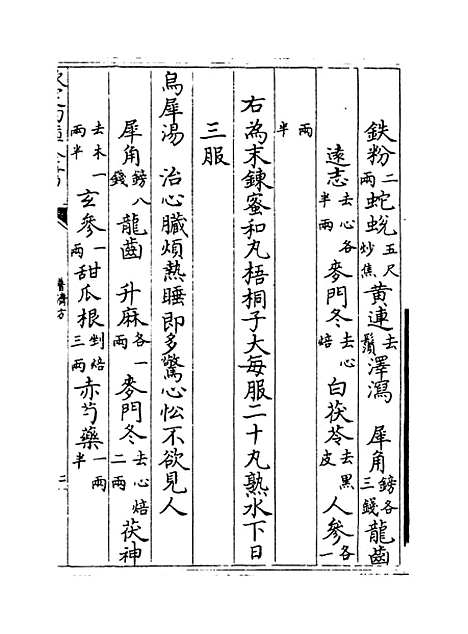 鉄粉二兩蛇蛻五尺炒焦黄連去鬚澤瀉 犀角鎊各三錢龍齒
遠志去心各半兩 麥門冬去心焙 白茯苓去黒皮 人參各一
兩半
右為末鍊蜜和丸梧桐子大每服二十丸熟水下日
三服
烏犀湯 治心臟煩熱睡即多驚心忪不欲見人
犀角鎊八錢 龍齒 升麻各一兩 麥門冬去心焙二兩 茯神
去木一兩半 玄參一兩 甜瓜根剉焙三兩 赤芍藥一兩半
普濟方